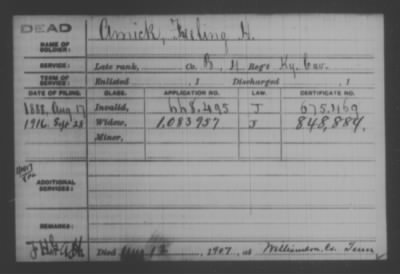 DEAD
NAME OF SOLDIER: Amick, Keeling H.
SERVICE: Late rank, Co. B, 11 Reg't Ky. Cav.
TERM OF SERVICE: Enlisted , 1 Discharged , 1
DATE OF FILING. CLASS. APPLICATION NO. LAW. CERTIFICATE NO.
1888, Aug 17 Invalid, 668,495 J 675,169
1916, Sept 28 Widow, 1,083757 J 848,884.
Minor,
ADDITIONAL SERVICES:
REMARKS:
Died Aug 12, 1907, at Williamson Co. Tenn